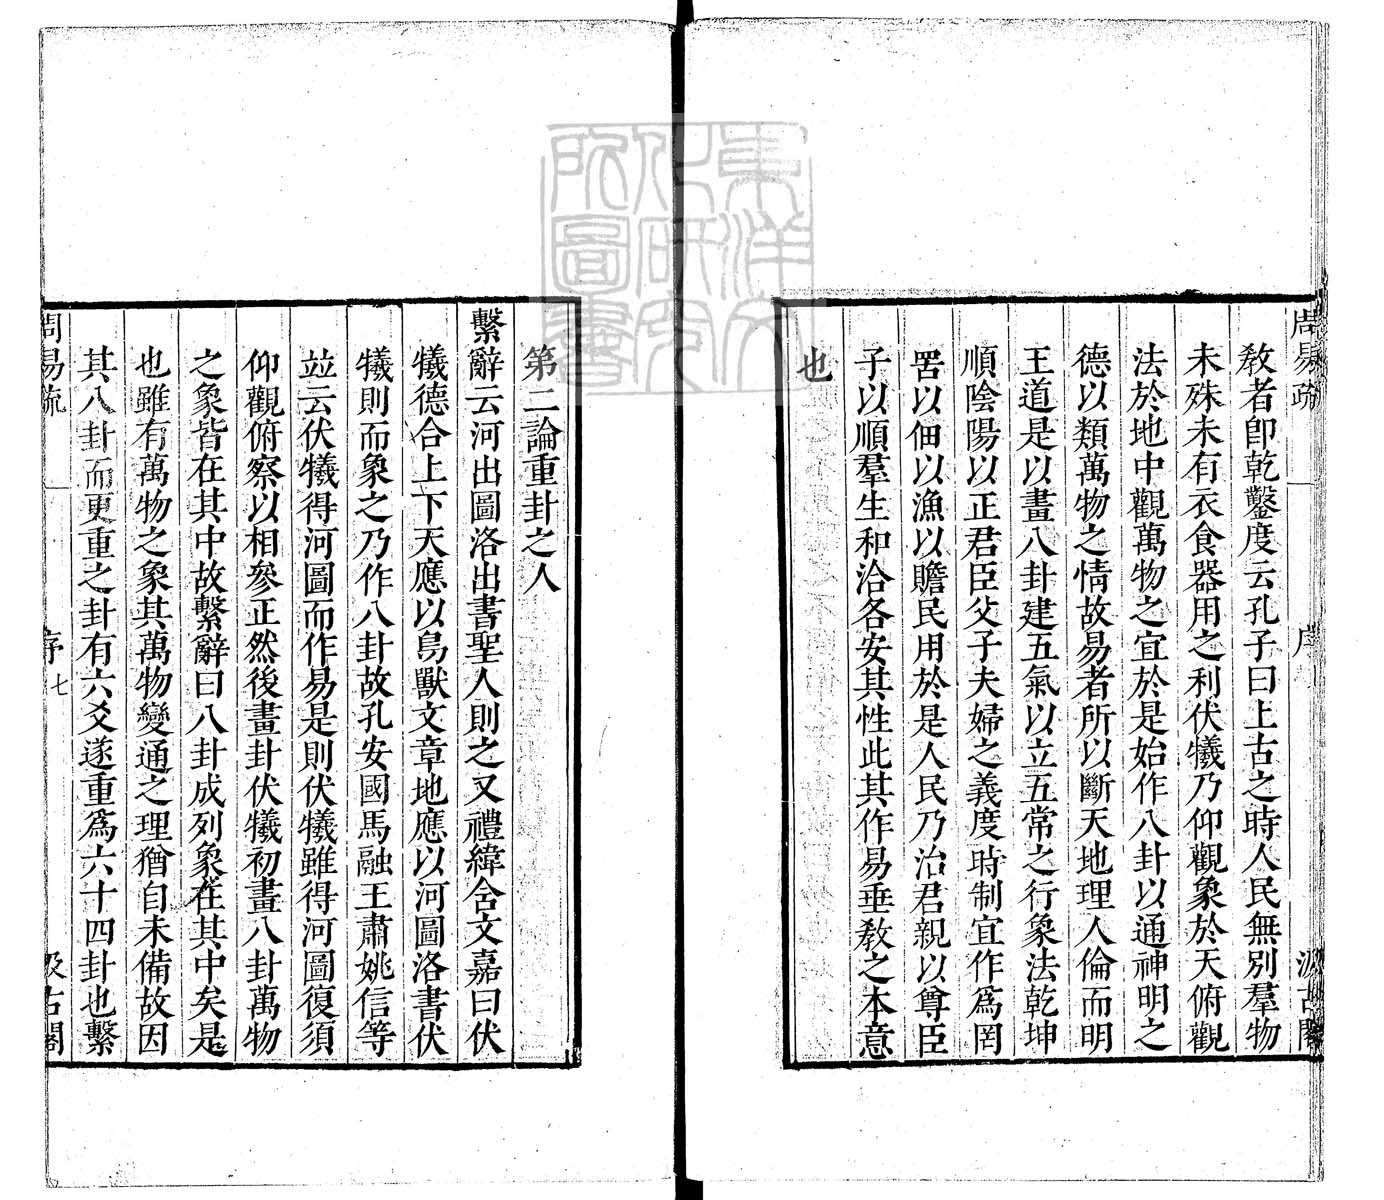 周易疏
序
汲古閣
教者卽乾鑿度云孔子曰上古之時人民無別羣物
未殊未有衣食器用之利伏犧乃仰觀象於天俯觀
法於地中觀萬物之宜於是始作八卦以通神明之
德以類萬物之情故易者所以斷天地理人倫而明
王道是以畫八卦建五氣以立五常之行象法乾坤
順陰陽以正君臣父子夫婦之義度時制宜作爲罔
罟以佃以漁以贍民用於是人民乃治君親以尊臣
子以順羣生和洽各安其性此其作易垂教之本意
也
第二論重卦之人
繫辭云河出圖洛出書聖人則之又禮緯含文嘉曰伏
犧德合上下天應以鳥獸文章地應以河圖洛書伏
犧則而象之乃作八卦故孔安國馬融王肅姚信等
竝云伏犧得河圖而作易是則伏犧雖得河圖復須
仰觀俯察以相參正然後畫卦伏犧初畫八卦萬物
之象皆在其中故繫辭曰八卦成列象在其中矣是
也雖有萬物之象其萬物變通之理猶自未備故因
其八卦而更重之卦有六爻遂重爲六十四卦也繫
周易疏
序
七
汲古閣
東洋文
化研究
所圖書